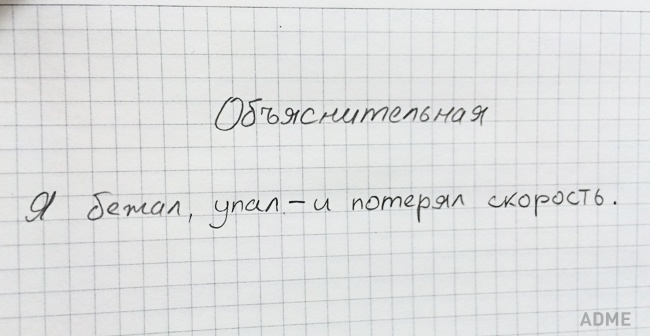 Объяснительная
Я бежал, упал – и потерял скорость.
ADME